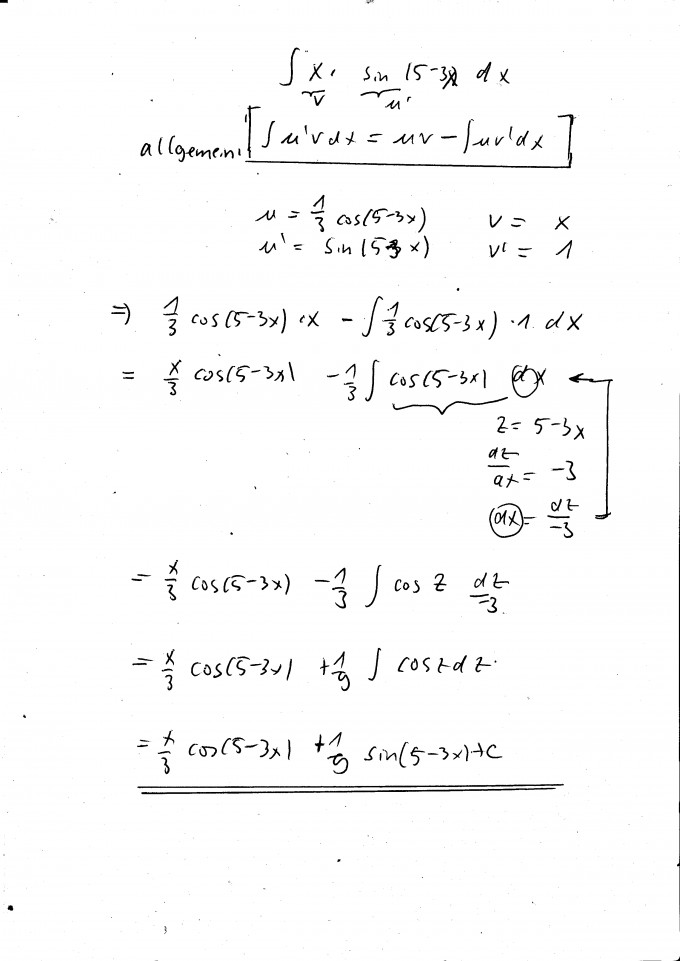 ∫ x · sin (5-3x) dx
v u'
allgemein: [∫ u'v dx = uv - ∫ uv' dx]
u = 1/3 cos(5-3x) v = x
u' = sin(5-3x) v' = 1
⇒ 1/3 cos(5-3x) · x - ∫ 1/3 cos(5-3x) · 1 dx
= x/3 cos(5-3x) - 1/3 ∫ cos(5-3x) dx
z = 5-3x
dz/dx = -3
dx = dz/-3
= x/3 cos(5-3x) - 1/3 ∫ cos z dz/-3
= x/3 cos(5-3x) + 1/9 ∫ cos z dz
= x/3 cos(5-3x) + 1/9 sin(5-3x) + C